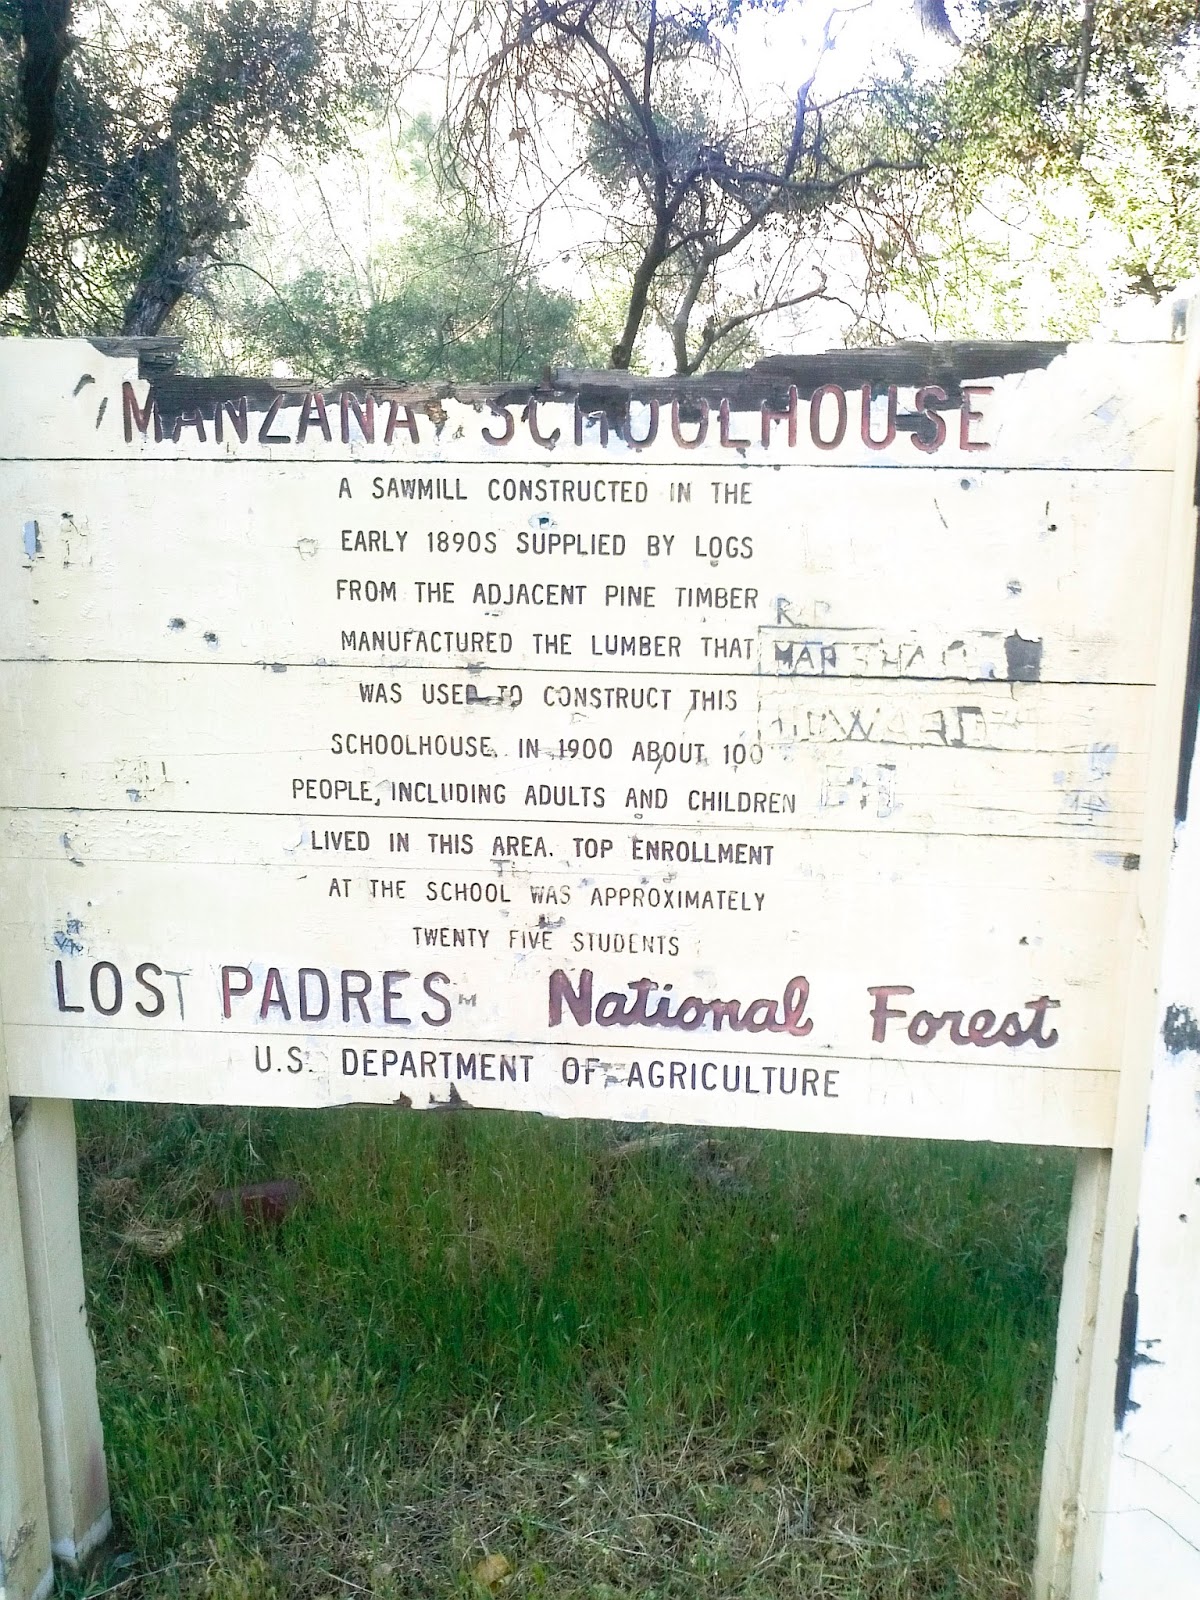 MANZANA SCHOOLHOUSE
A SAWMILL CONSTRUCTED IN THE
EARLY 1890S SUPPLIED BY LOGS
FROM THE ADJACENT PINE TIMBER
MANUFACTURED THE LUMBER THAT
WAS USED TO CONSTRUCT THIS
SCHOOLHOUSE. IN 1900 ABOUT 100
PEOPLE, INCLUDING ADULTS AND CHILDREN
LIVED IN THIS AREA. TOP ENROLLMENT
AT THE SCHOOL WAS APPROXIMATELY
TWENTY FIVE STUDENTS
LOST PADRES National Forest
U.S. DEPARTMENT OF AGRICULTURE